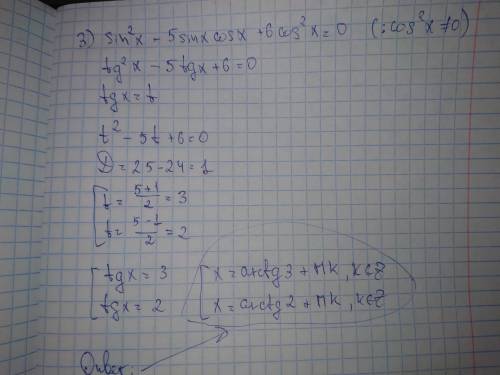 3) sin²x - 5sinxcosx + 6cos²x = 0 (:cos²x≠0)
tg²x - 5tgx + 6 = 0
tgx = t
t² - 5t + 6 = 0
D = 25 - 24 = 1
[ t = (5+1)/2 = 3
[ t = (5-1)/2 = 2
[ tgx = 3 [ x = arctg3 + πk, k∈Z
[ tgx = 2 [ x = arctg2 + πk, k∈Z
Ответ: